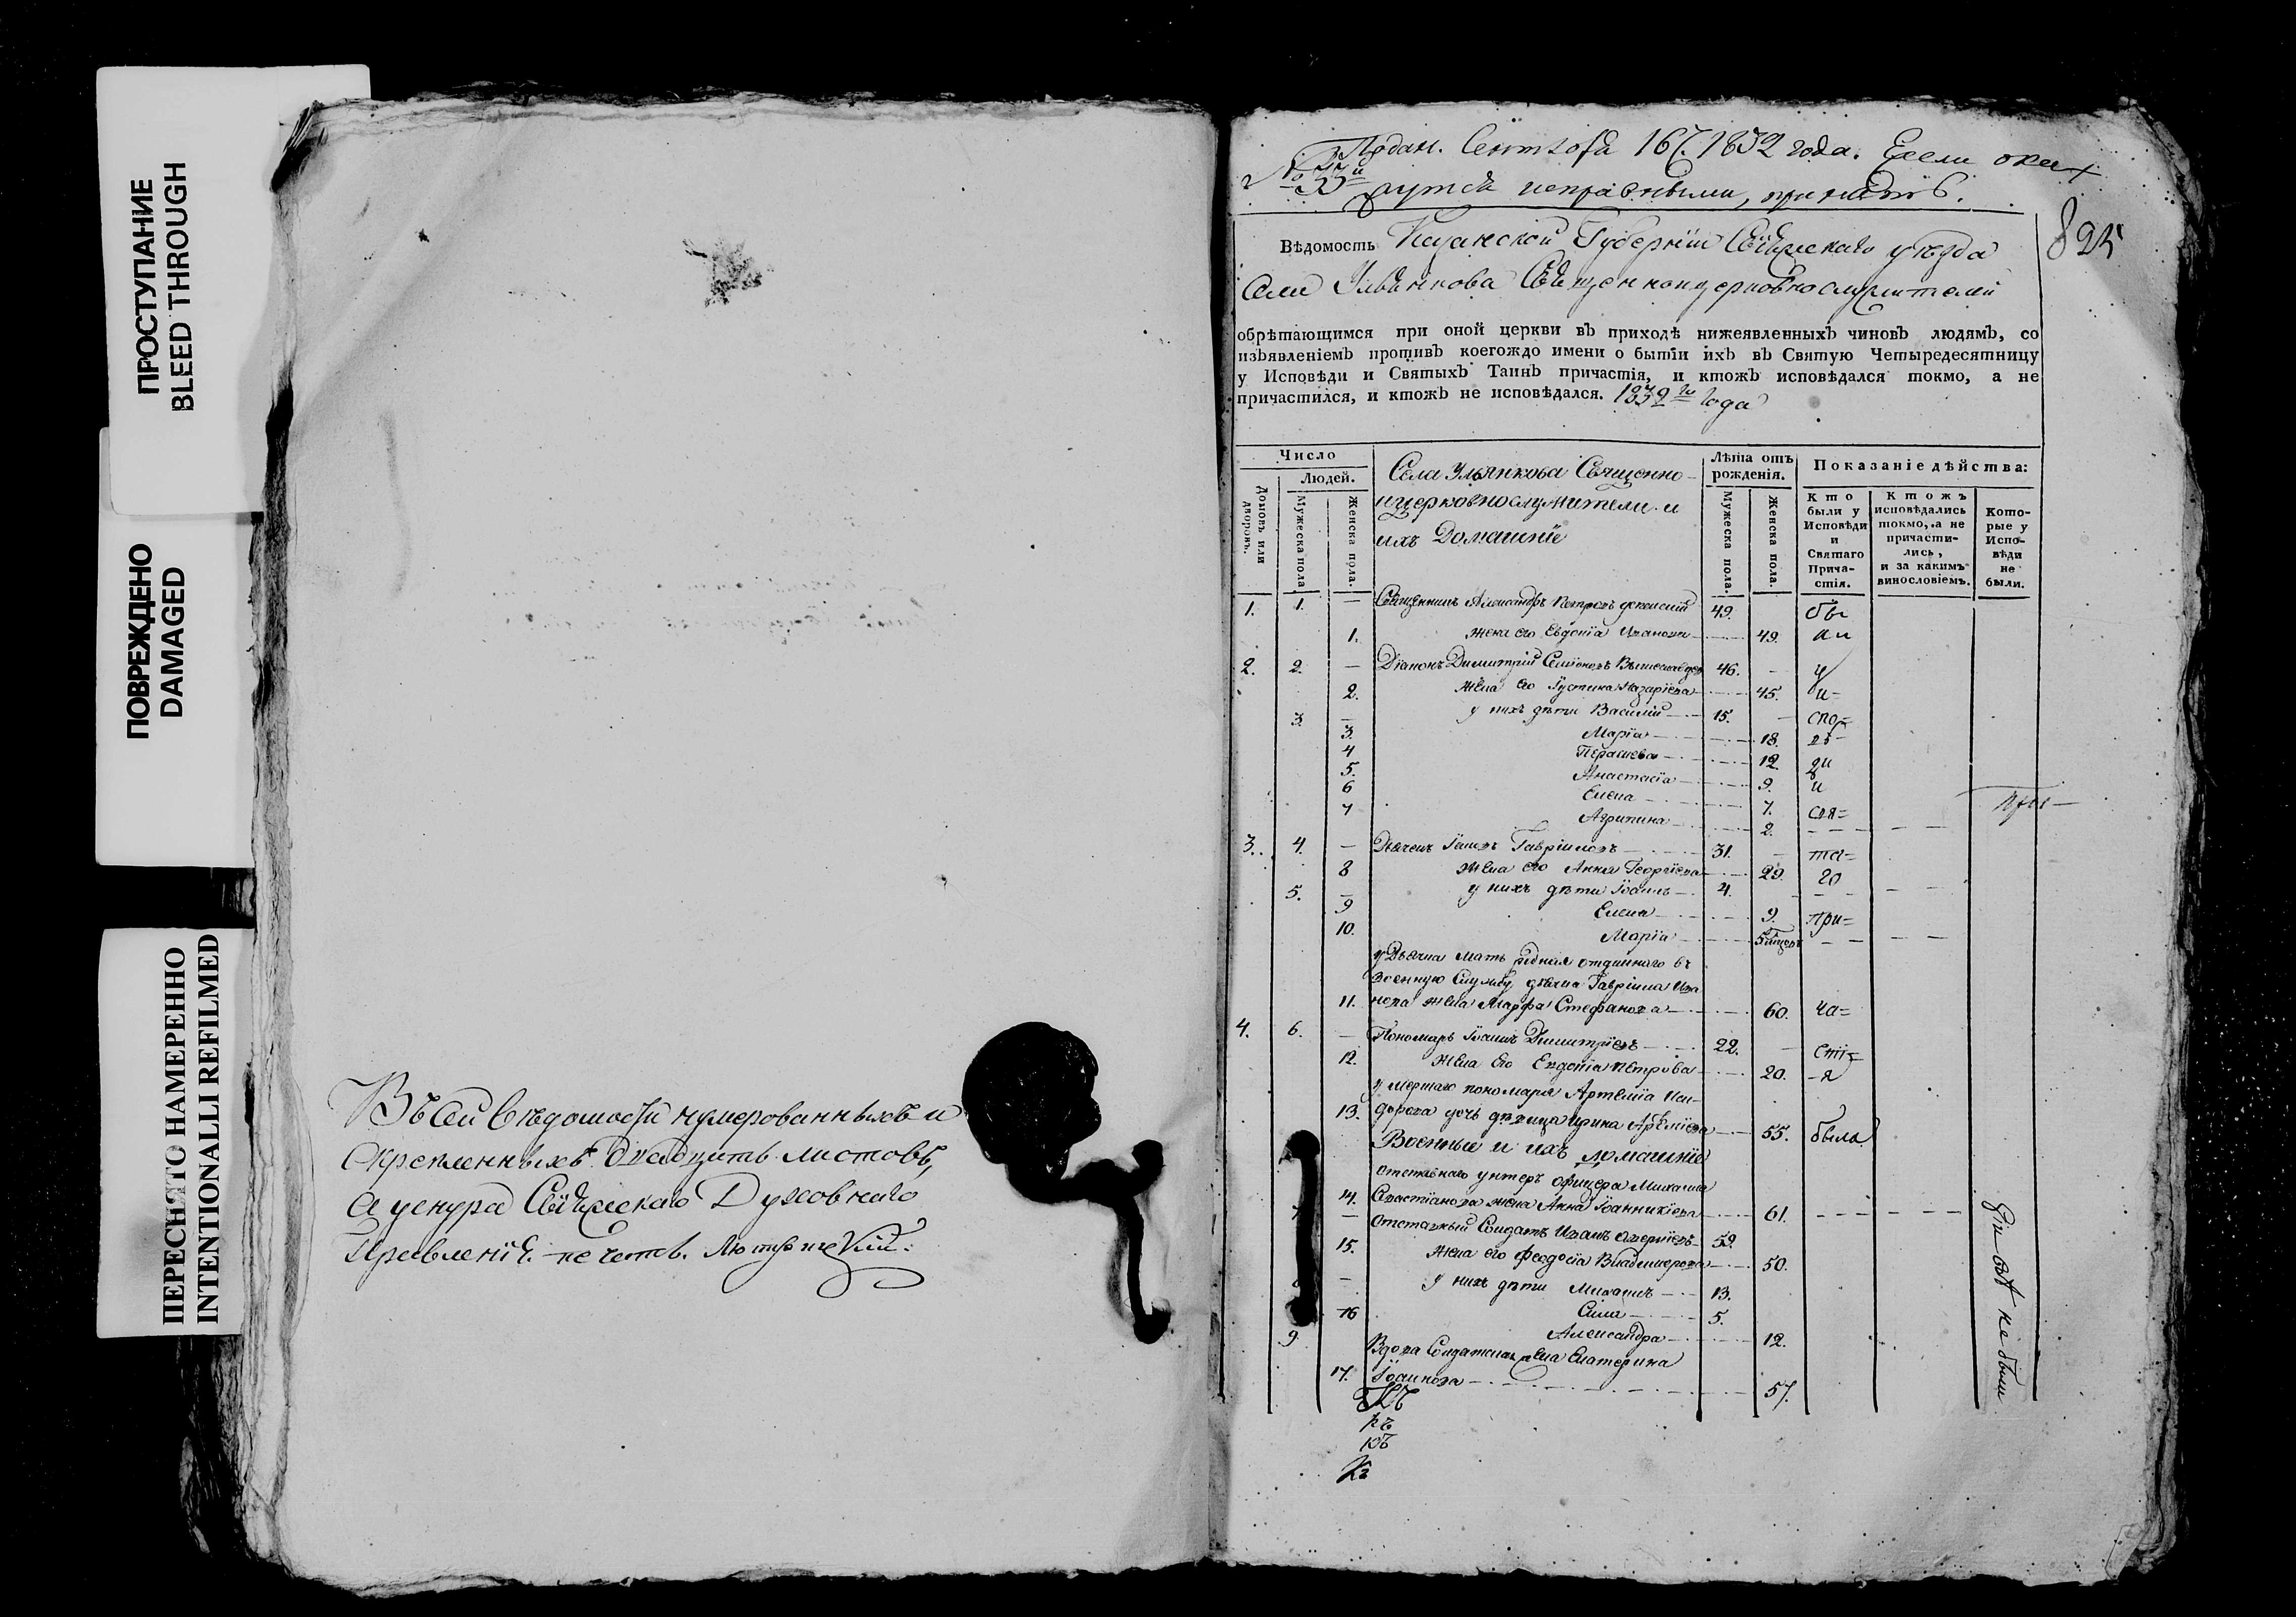 ПРОСТУПАНИЕ
BLEED THROUGH
ПОВРЕЖДЕНО
DAMAGED
ПЕРЕСНЯТО НАМЕРЕННО
INTENTIONALLI REFILMED
Въ сей вѣдомости нумерованныхъ и
скрепленныхъ двадцать листовъ,
Духовнаго
Правленія
№ 33й
Подан. Сентября 16. 1832 года. Если ока
жутся неправными,
825
Вѣдомость Казанской Губерніи Свіяжскаго уѣзда
Села Ульянкова Священноцерковнослужителей
обрѣтающимся при оной церкви въ приходѣ нижеявленныхъ чиновъ людямъ, со
изъявленіемъ противъ коегождо имени о бытіи ихъ въ Святую Четыредесятницу
у Исповѣди и Святыхъ Таинъ причастія, и ктожъ исповѣдался токмо, а не
причастился, и ктожъ не исповѣдался. 1832го года
Число
Людей.
Домовъ или дворовъ.
Мужеска пола
Женска пола.
Села Ульянкова Священно-
ицерковнослужители и
ихъ Домашніе
Лѣта отъ рожденія.
Мужеска пола.
Женска пола.
Показаніе дѣйства:
Кто были у Исповѣди и Святаго Прича-стія.
Ктожъ исповѣдались токмо, а не причасти-лись, и за какимъ винословіемъ.
Кото-рые у Испо-вѣди не были.
1. 1. — Священникъ Александръ Петровъ 49. бы
1. жена его Евдокіа Иванова 49. ли
2. 2. — Діаконъ Димитрій Симіоновъ 46. — у
2. Жена его Іустина Назаріева 45. и-
3. — у нихъ дѣти Василій 15. — спо-
3. Маріа 18. вѣ-
4 Параскева 12. ди
5. Анастасіа 9. и
6 Елена 7. свя-
7 Агрипина 2.
3. 4. — Дьячекъ Гавріиловъ 31. — та-
8 Жена его Анна Георгіева 29. го
5. — у нихъ дѣти Іоаннъ 4.
9 Елена 9. при-
10. Маріа
у Дьячка мать родная отданнаго въ
военную службу дьячка Гавріила Ива
11. нова жена Марфа Стефанова 60. ча-
4. 6. — Пономарь Іоаннъ Димитріевъ 22. — сті-
12. Жена его Евдокіа Петрова 20. -я
умершаго пономаря Артеміа Иси-
13. дорова дочь дѣвица Ирина Артеміева 55. была
Военные и ихъ домашніе
отставнаго унтеръ офицера Михаила
14. Севастіанова жена Анна Іоанникіева 61.
7 — Отставный Солдатъ Иванъ 59.
15. Жена его Феодосіа Владимерова 50.
8 — у нихъ дѣти Михаилъ 13.
9 Сила 5.
16 Александра 12.
Вдова Солдатская жена Екатерина
17. Іоаннова 57.
не были